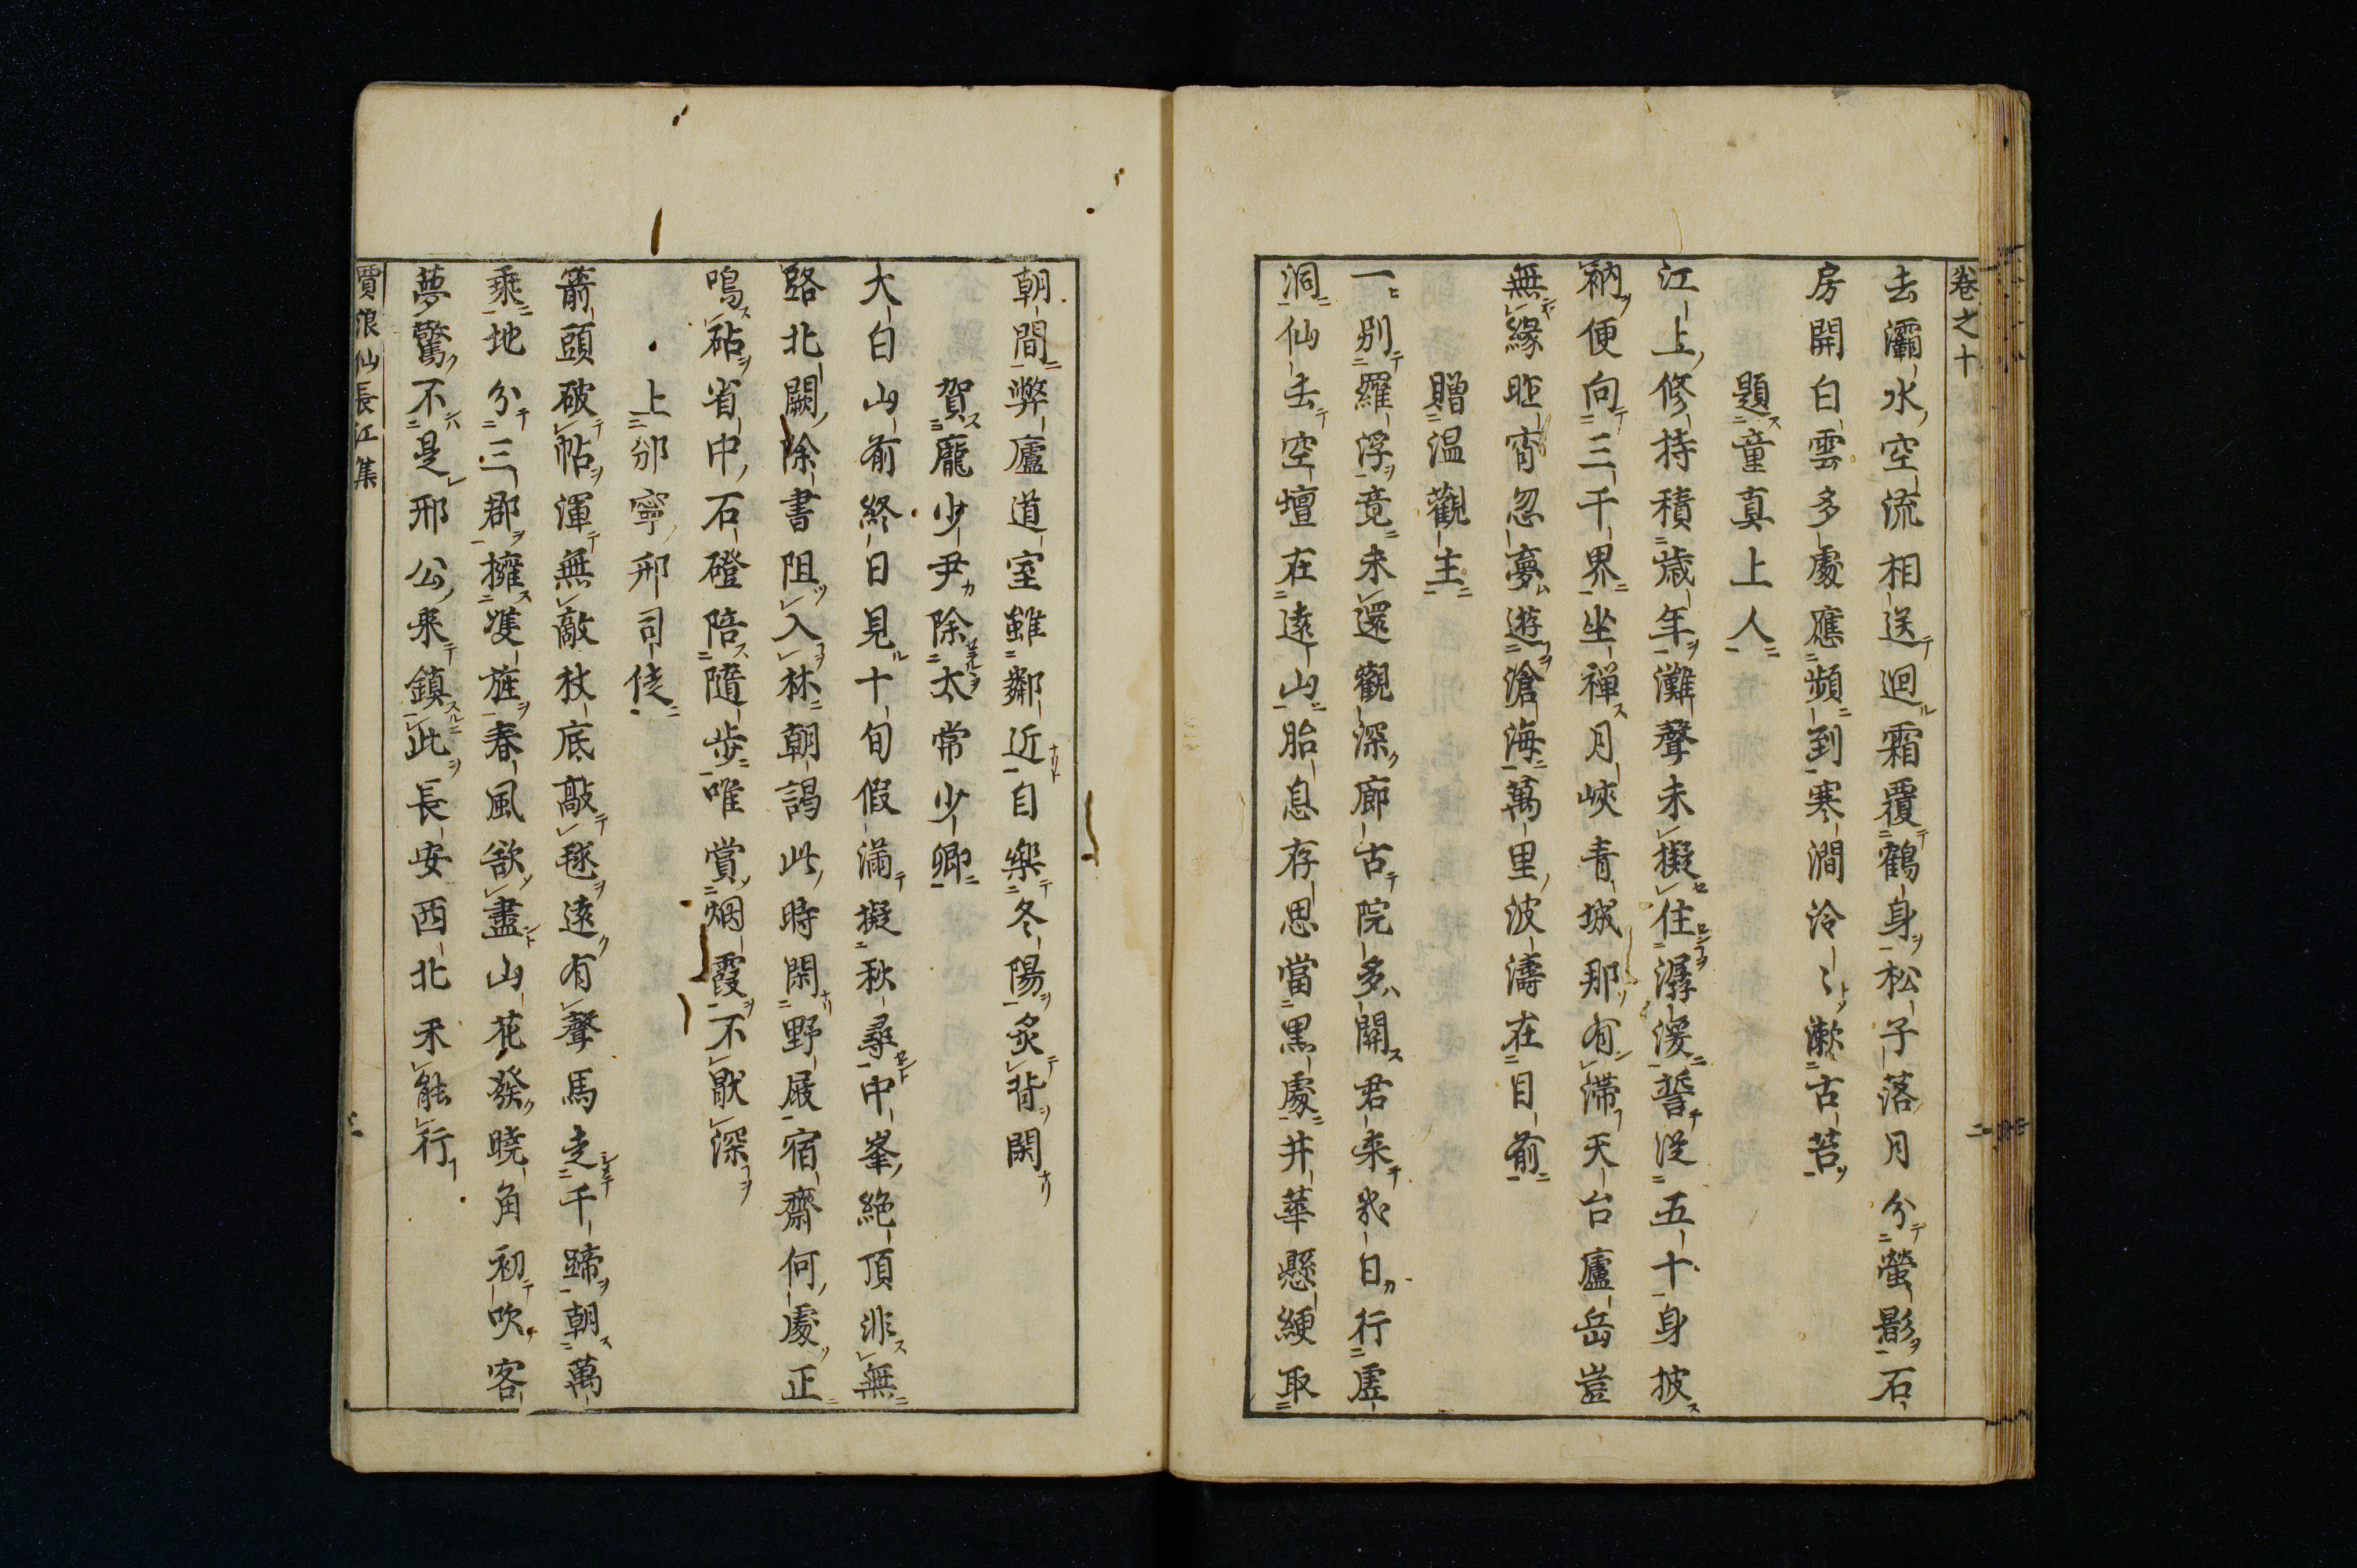 卷之十
去灞水空流相送迴霜覆鶴身松子落月分螢影石
房開白雲多處應頻到寒澗泠〻漱古苔
題童真上人
江上修持積歳年灘聲未擬住潺湲誓從五十身披
衲便向三千界坐禅月峽青城那有滯天台廬岳豈
無緣昨宵忽夢遊滄海萬里波濤在目前
贈温觀主
一別羅浮竟未還觀深廊古院多關君來幾日行虛
洞仙去空壇在遠山胎息存思當黒處井華懸綆取
朝間弊廬道室雖鄰近自樂冬陽炙背閑
賀龐少尹除太常少卿
太白山前終日見十旬假滿擬秋尋中峯絶頂非無
路北闕除書阻入林朝謁此時閑野屐宿齋何處正
鳴砧省中石磴陪隨步唯賞烟霞不猒深
上邠寧邢司徒
箭頭破帖渾無敵杖底敲毬遠有聲馬走千蹄朝萬
乗地分三郡擁雙旌春風欲盡山花發曉角初吹客
夢驚不是邢公來鎮此長安西北未能行
賈浪仙長江集